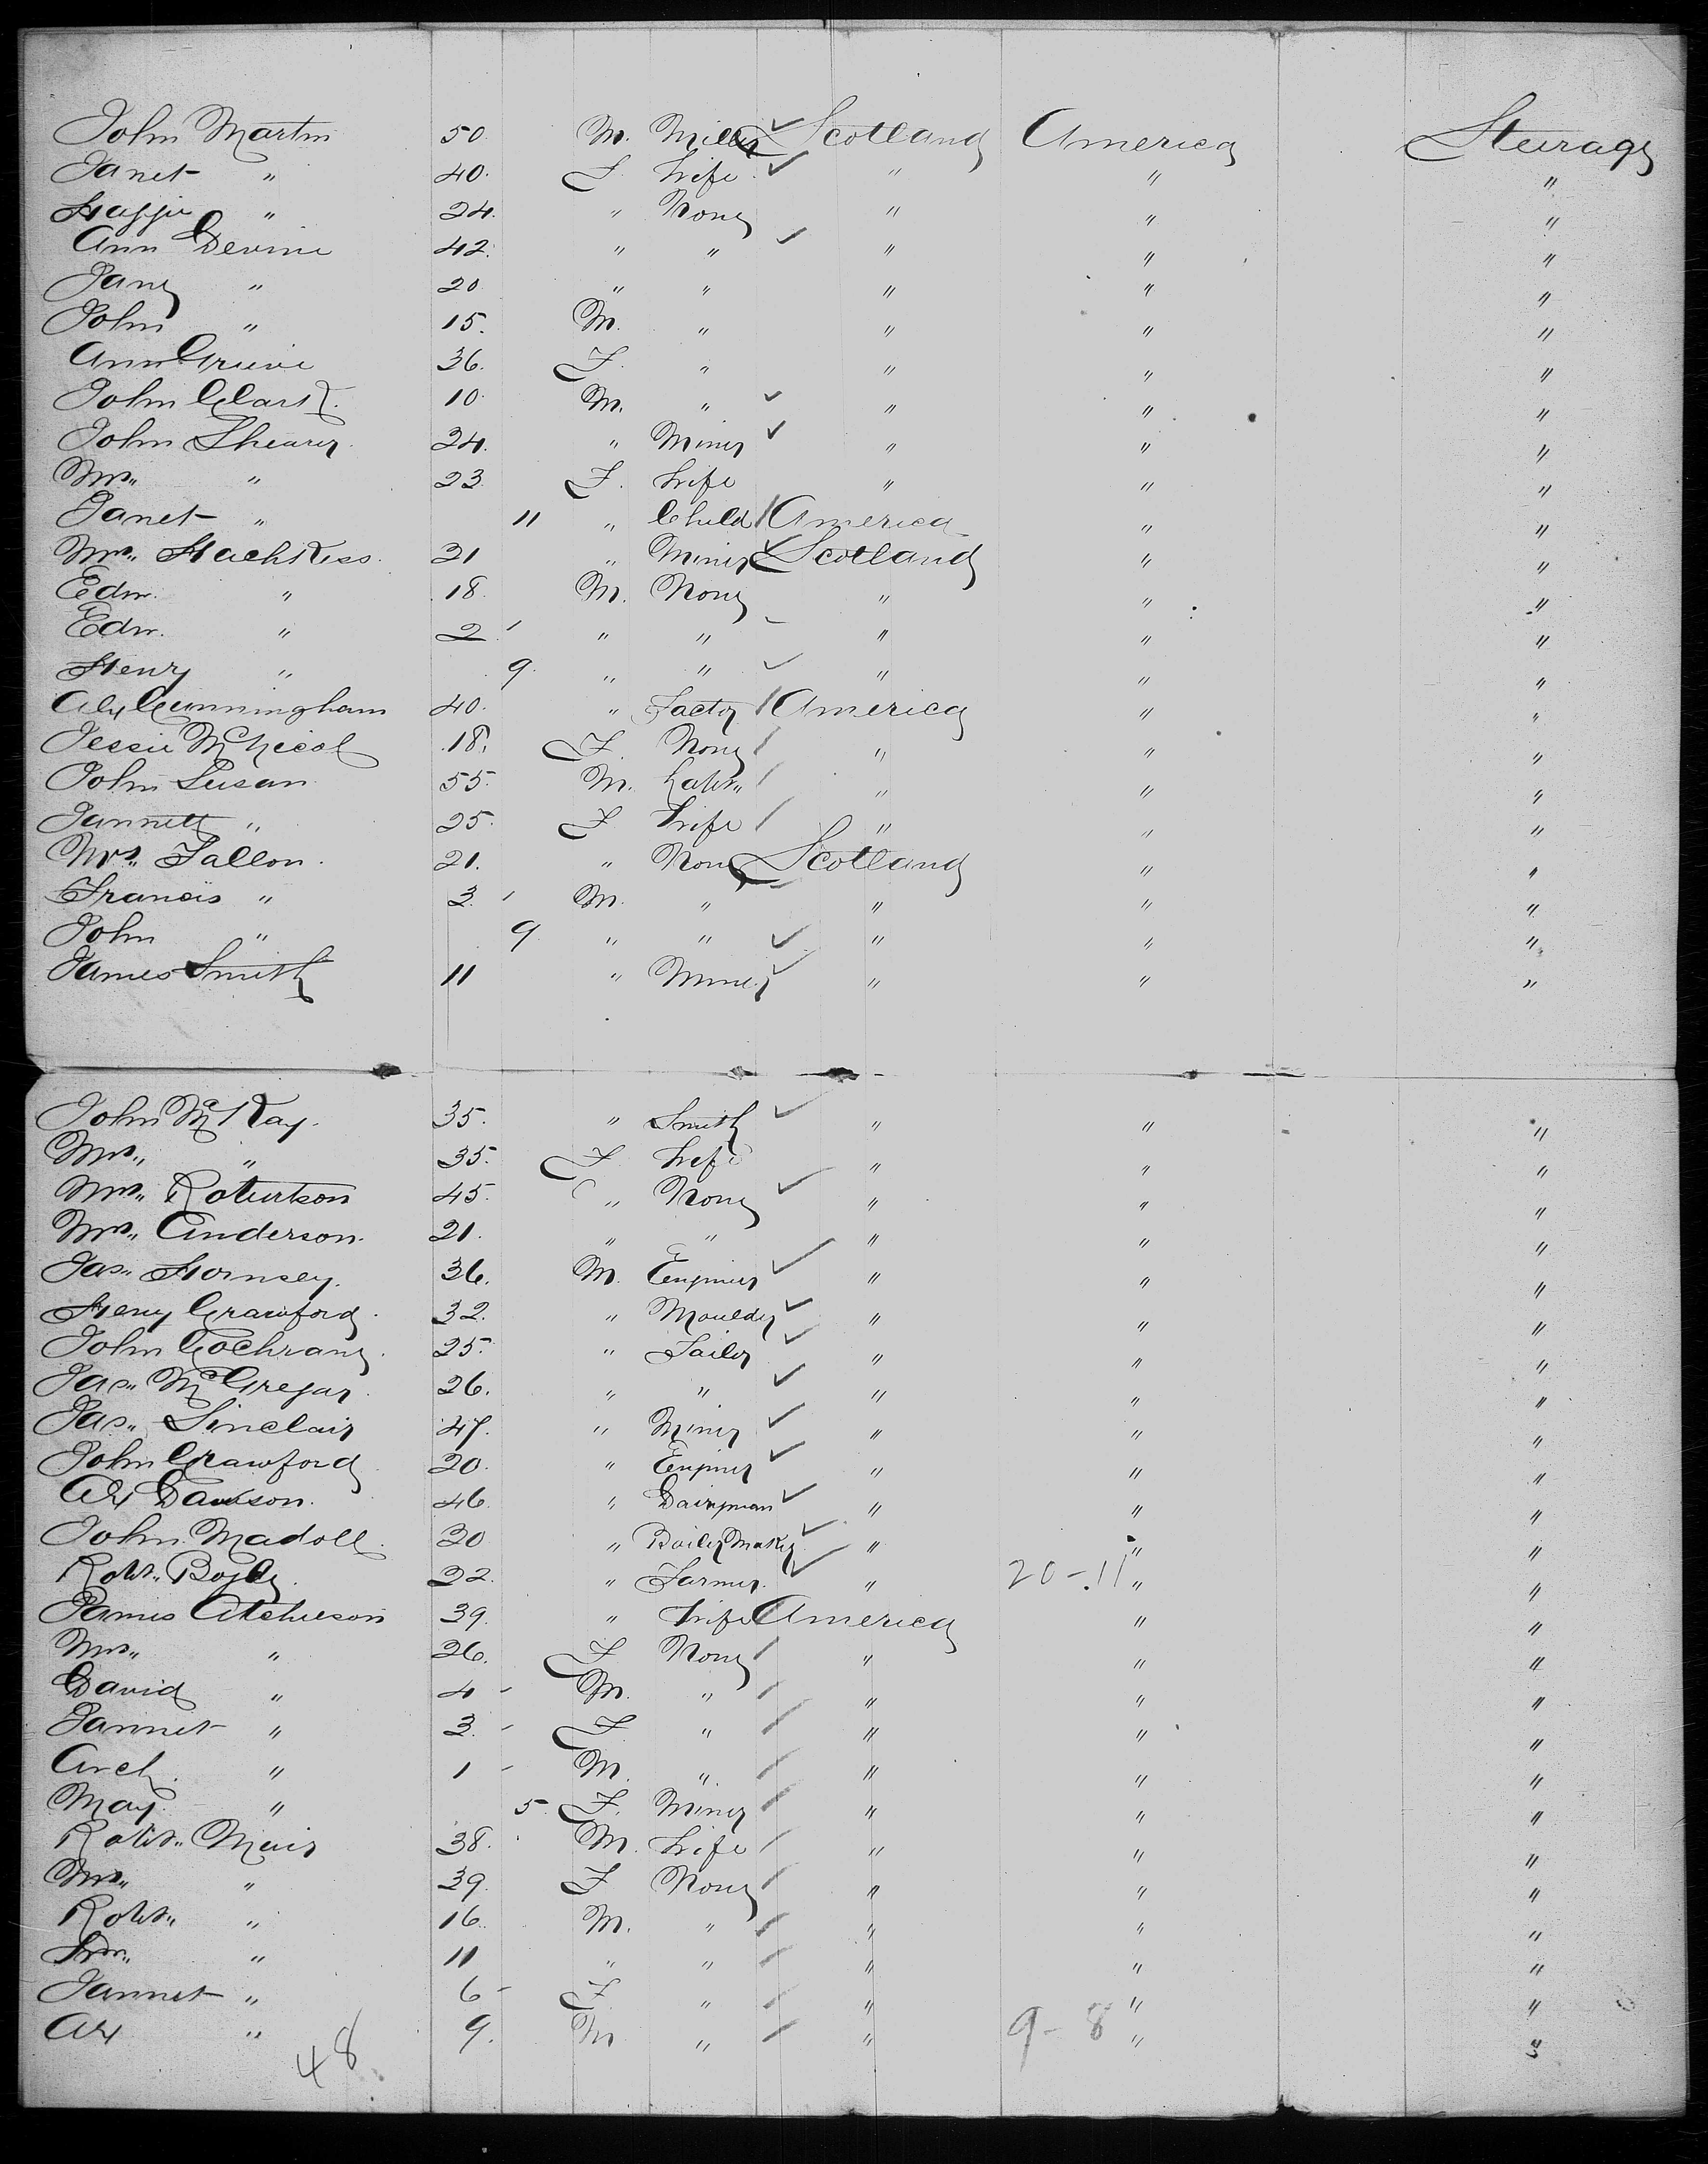 John Martin 50 M. Miller Scotland America Steerage
Janet " 40. F. Wife " " "
" 24. " None " " "
Ann Devine 42. " " " " "
Jane " 20 " " " " "
John " 15. M. " " " "
Ann Grieve 36. F. " " " "
John Clark. 10. M. " " " "
John Shearer 24. " Miner " " "
Mrs. " 23 F. Wife " " "
Janet " 11 " Child America " "
Mrs. 21 " Miner Scotland " "
Edw. " 18. M. None " " "
Edw. " 2 " " " " "
Henry " 9. " " " " "
Alex Cunningham 40. " Factor America " "
Jessie McNicol 18. F. None " " "
John Susan 55. M. Labr. " " "
Jannett " 25. F Wife " " "
Mrs. Fallon. 21. " None Scotland " "
Francis " 3. M. " " " "
John " 9 " " " " "
James Smith 11 " Miner " " "
John McKay. 35. " Smith " " "
Mrs. " 35. F. Wife " " "
Mrs. Robertson 45. " None " " "
Mrs. Anderson. 21. " " " " "
Jas. Hornsey. 36. M. Engineer " " "
Henry Crawford. 32. " Moulder " " "
John Cochrane. 25. " Tailor " " "
Jas. McGregor. 26. " " " " "
Jas. Sinclair 47. " Miner " " "
John Crawford 20. " Engineer " " "
Alex Dawson. 46. " Dairyman " " "
John Madole. 30 " Boiler Maker " " "
Robt. 22. " Farmer. " 20-11 " "
James Atchieson 39. " Wife America " "
Mrs. " 26. F None " " "
David " 4 M. " " " "
Jannet " 3. F " " " "
Arch. " 1 M. " " " "
May. " 5 F. Miner " " "
Robt. Muir 38. M. Wife " " "
Mrs. " 39. F None " " "
Robt. " 16. M. " " " "
Wm. " 11 " " " " "
Jannet " 6 F " " " "
Alex " 9. M " " 9-8 " "
48